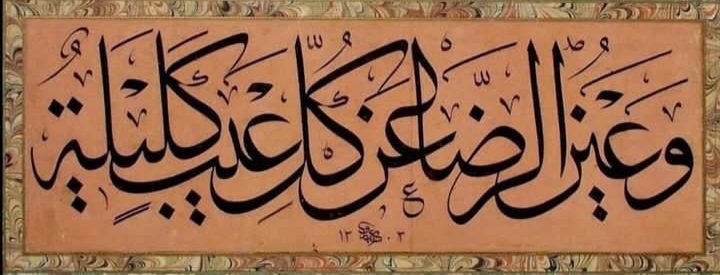 وَعَيْنُ الرِّضَا عَنْ كُلِّ عَيْبٍ كَلِيلَةٌ
١٢٠٣